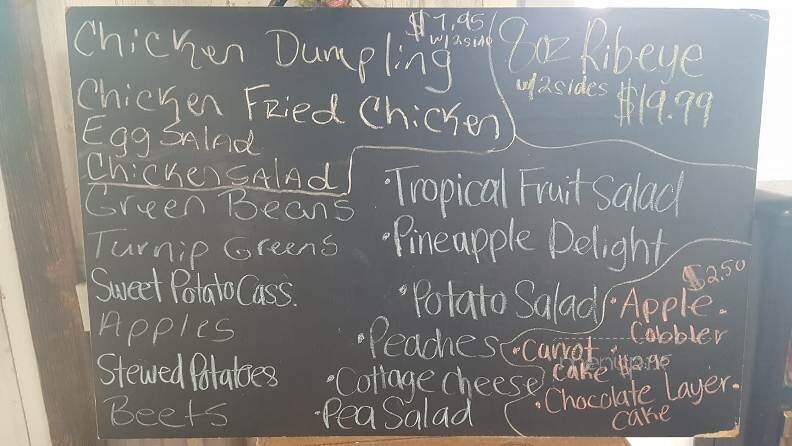 Chicken Dumpling
$7.95
w/2side
Chicken Fried Chicken
Egg Salad
Chicken Salad
8oz Ribeye
w/2sides
$19.99
Green Beans
Turnip Greens
Sweet Potato Cass.
Apples
Stewed Potatoes
Beets
•Tropical Fruit Salad
•Pineapple Delight
•Potato Salad
•Peaches
•Cottage cheese
•Pea Salad
$2.50
•Apple
Cobbler
•Carrot
cake
•Chocolate Layer
cake